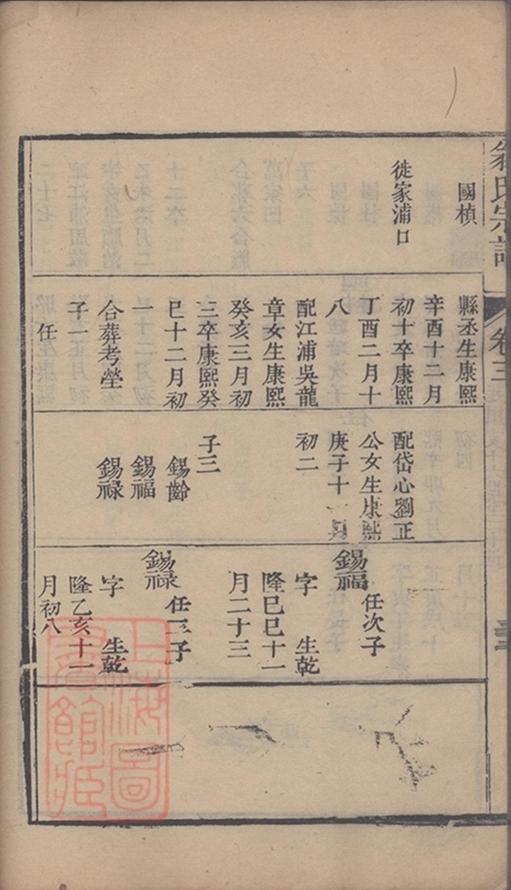 氏宗譜
卷三
國楨
徙家浦口
縣丞生康熙
辛酉十二月
初十卒康熙
丁酉二月十
八
配江浦吳龍
章女生康熙
癸亥三月初
三卒康熙癸
巳十二月初
一
合葬考塋
子一
任
配岱心劉正
公女生康熙
庚子十一月
初二
子三
錫齡
錫福
錫祿
錫福
任次子
字 生乾
隆己巳十一
月二十三
錫祿
任三子
字 生乾
隆乙亥十一
月初八
上海圖
書館藏